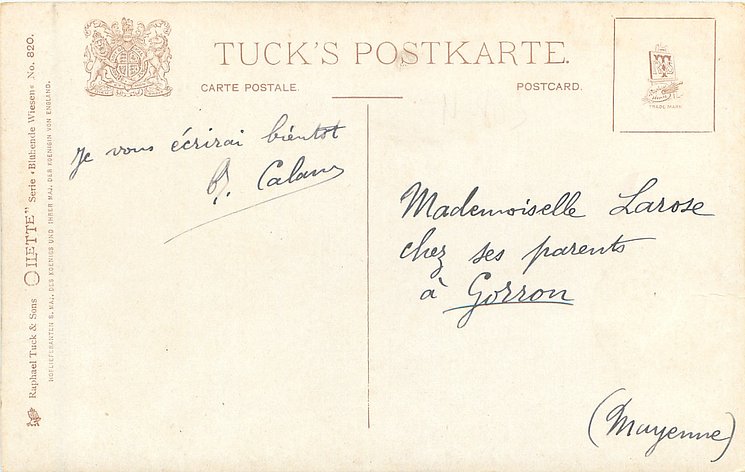 TUCK'S POSTKARTE.
CARTE POSTALE.
POSTCARD.
TRADE MARK
Raphael Tuck & Sons „OILETTE" Serie «Blühende Wiesen» No. 820.
HOFLIEFERANTEN S. MAJ. DES KOENIGS UND IHRER MAJ. DER KOENIGIN VON ENGLAND.
Je vous écrirai bientôt
Mademoiselle Larose
chez ses parents
à Gorron
(Mayenne)